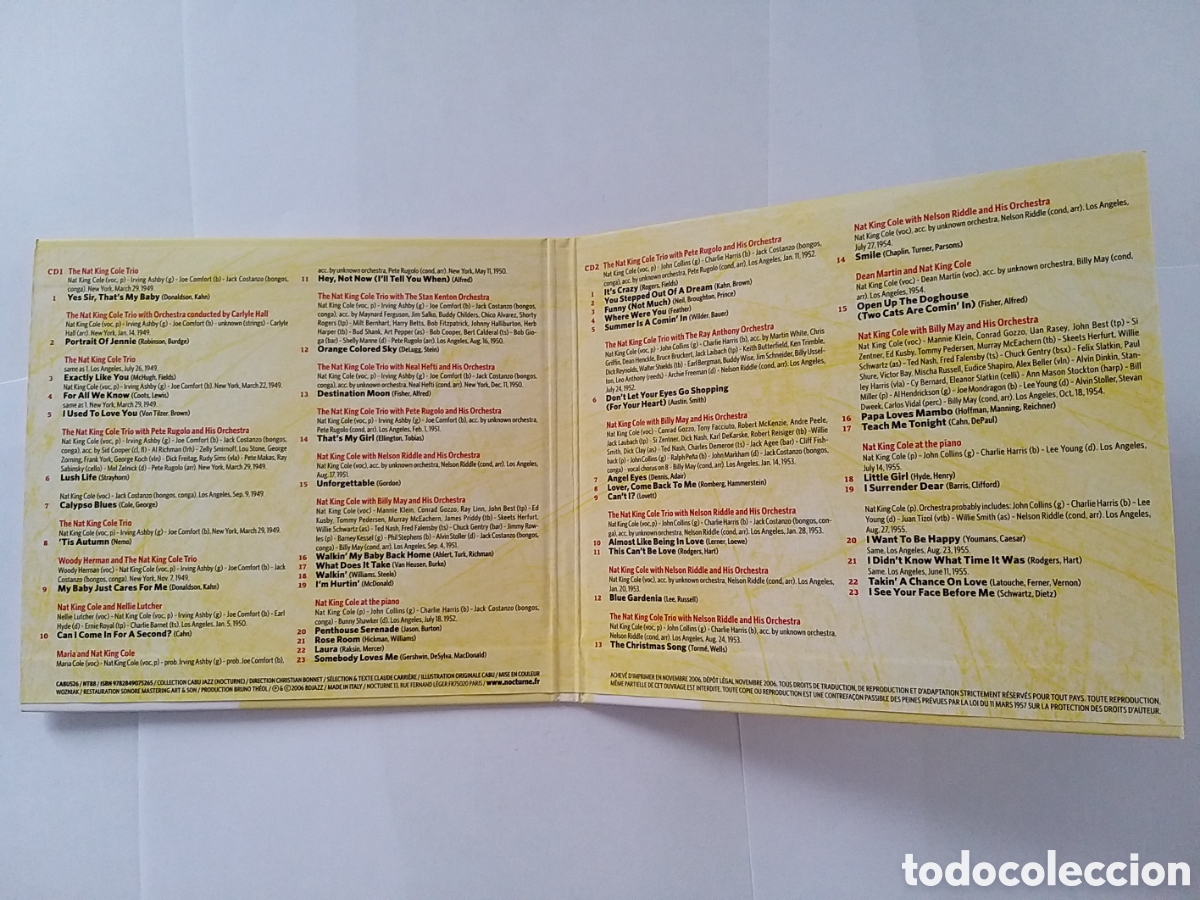 CD1 The Nat King Cole Trio
Nat King Cole (voc, p) - Irving Ashby (g) - Joe Comfort (b) - Jack Costanzo (bongos,
conga). New York, March 29, 1949.
1 Yes Sir, That's My Baby (Donaldson, Kahn)
The Nat King Cole Trio with Orchestra conducted by Carlyle Hall
Nat King Cole (voc, p) - Irving Ashby (g) - Joe Comfort (b) - unknown (strings) - Carlyle
Hall (arr). New York, Jan. 14, 1949.
2 Portrait Of Jennie (Robinson, Burdge)
The Nat King Cole Trio
same as 1. Los Angeles, July 26, 1949.
3 Exactly Like You (McHugh, Fields)
Nat King Cole (voc, p) - Irving Ashby (g) - Joe Comfort (b). New York, March 22, 1949.
4 For All We Know (Coots, Lewis)
same as 1. New York, March 29, 1949.
5 I Used To Love You (Von Tilzer, Brown)
The Nat King Cole Trio with Pete Rugolo and His Orchestra
Nat King Cole (voc, p) - Irving Ashby (g) - Joe Comfort (b) - Jack Costanzo (bongos,
conga), acc. by Sid Cooper (cl, fl) - Al Richman (frh) - Zelly Smirnoff, Lou Stone, George
Zorning, Frank York, George Koch (vln) - Dick Freitag, Rudy Sims (vla) - Pete Makas, Ray
Sabinsky (cello) - Mel Zelnick (d) - Pete Rugolo (arr). New York, March 29, 1949.
6 Lush Life (Strayhorn)
Nat King Cole (voc) - Jack Costanzo (bongos, conga). Los Angeles, Sep. 9, 1949.
7 Calypso Blues (Cole, George)
The Nat King Cole Trio
Nat King Cole (voc, p) - Irving Ashby (g) - Joe Comfort (b). New York, March 29, 1949.
8 'Tis Autumn (Nemo)
Woody Herman and The Nat King Cole Trio
Woody Herman (voc) - Nat King Cole (voc, p) - Irving Ashby (g) - Joe Comfort (b) - Jack
Costanzo (bongos, conga). New York, Nov. 7, 1949.
9 My Baby Just Cares For Me (Donaldson, Kahn)
Nat King Cole and Nellie Lutcher
Nellie Lutcher (voc) - Nat King Cole (voc, p) - Irving Ashby (g) - Joe Comfort (b) - Earl
Hyde (d) - Ernie Royal (tp) - Charlie Barnet (ts). Los Angeles, Jan. 5, 1950.
10 Can I Come In For A Second? (Cahn)
Maria and Nat King Cole
Maria Cole (voc) - Nat King Cole (voc, p) - prob. Irving Ashby (g) - prob. Joe Comfort (b),
acc. by unknown orchestra, Pete Rugolo (cond, arr). New York, May 11, 1950.
11 Hey, Not Now (I'll Tell You When) (Alfred)
The Nat King Cole Trio with The Stan Kenton Orchestra
Nat King Cole (voc, p) - Irving Ashby (g) - Joe Comfort (b) - Jack Costanzo (bongos,
conga), acc. by Maynard Ferguson, Jim Salko, Buddy Childers, Chico Alvarez, Shorty
Rogers (tp) - Milt Bernhart, Harry Betts, Bob Fitzpatrick, Johnny Halliburton, Herb
Harper (tb) - Bud Shank, Art Pepper (as) - Bob Cooper, Bert Calderal (ts) - Bob Gio-
ga (bar) - Shelly Manne (d) - Pete Rugolo (arr). Los Angeles, Aug. 16, 1950.
12 Orange Colored Sky (DeLugg, Stein)
The Nat King Cole Trio with Neal Hefti and His Orchestra
Nat King Cole (voc, p) - Irving Ashby (g) - Joe Comfort (b) - Jack Costanzo (bongos,
conga), acc. by unknown orchestra, Neal Hefti (cond, arr). New York, Dec. 11, 1950.
13 Destination Moon (Fisher, Alfred)
The Nat King Cole Trio with Pete Rugolo and His Orchestra
Nat King Cole (voc, p) - Irving Ashby (g) - Joe Comfort (b), acc. by unknown orchestra,
Pete Rugolo (cond, arr). Los Angeles, Feb. 1, 1951.
14 That's My Girl (Ellington, Tobias)
Nat King Cole with Nelson Riddle and His Orchestra
Nat King Cole (voc), acc. by unknown orchestra, Nelson Riddle (cond, arr). Los Angeles,
Aug. 17, 1951.
15 Unforgettable (Gordon)
Nat King Cole with Billy May and His Orchestra
Nat King Cole (voc) - Mannie Klein, Conrad Gozzo, Ray Linn, John Best (tp) - Ed
Kusby, Tommy Pedersen, Murray McEachern, James Priddy (tb) - Skeets Herfurt,
Willie Schwartz (as) - Ted Nash, Fred Falensby (ts) - Chuck Gentry (bar) - Jimmy Row-
les (p) - Barney Kessel (g) - Phil Stephens (b) - Alvin Stoller (d) - Jack Costanzo (bongos,
conga) - Billy May (cond, arr). Los Angeles, Sep. 4, 1951.
16 Walkin' My Baby Back Home (Ahlert, Turk, Richman)
17 What Does It Take (Van Heusen, Burke)
18 Walkin' (Williams, Steele)
19 I'm Hurtin' (McDonald)
Nat King Cole at the piano
Nat King Cole (p) - John Collins (g) - Charlie Harris (b) - Jack Costanzo (bongos,
conga) - Bunny Shawker (d). Los Angeles, July 18, 1952.
20 Penthouse Serenade (Jason, Burton)
21 Rose Room (Hickman, Williams)
22 Laura (Raksin, Mercer)
23 Somebody Loves Me (Gershwin, DeSylva, MacDonald)
CABU526 / NT88 / ISBN 9782849075265 / COLLECTION CABU JAZZ (NOCTURNE) / DIRECTION CHRISTIAN BONNET / SÉLECTION & TEXTE CLAUDE CARRIÈRE / ILLUSTRATION ORIGINALE CABU / MISE EN COULEUR
WOZNIAK / RESTAURATION SONORE MASTERING ART & SON / PRODUCTION BRUNO THÉOL / ℗ © 2006 BDJAZZ / MADE IN ITALY / NOCTURNE 11, RUE FERNAND LÉGER FR75020 PARIS / www.nocturne.fr
CD2 The Nat King Cole Trio with Pete Rugolo and His Orchestra
Nat King Cole (voc, p) - John Collins (g) - Charlie Harris (b) - Jack Costanzo (bongos,
conga), acc. by unknown orchestra, Pete Rugolo (cond, arr). Los Angeles, Jan. 11, 1952.
1 It's Crazy (Rogers, Fields)
2 You Stepped Out Of A Dream (Kahn, Brown)
3 Funny (Not Much) (Neil, Broughton, Prince)
4 Where Were You (Feather)
5 Summer Is A Comin' In (Wilder, Bauer)
The Nat King Cole Trio with The Ray Anthony Orchestra
Nat King Cole (voc, p) - John Collins (g) - Charlie Harris (b), acc. by Martin White, Chris
Griffin, Dean Henckle, Bruce Bruckert, Jack Laibach (tp) - Keith Butterfield, Ken Trimble,
Dick Reynolds, Walter Shields (tb) - Earl Bergman, Buddy Wise, Jim Schneider, Billy Ussel-
ton, Leo Anthony (reeds) - Archie Freeman (d) - Nelson Riddle (cond, arr). Los Angeles,
July 24, 1952.
6 Don't Let Your Eyes Go Shopping
(For Your Heart) (Austin, Smith)
Nat King Cole with Billy May and His Orchestra
Nat King Cole (voc) - Conrad Gozzo, Tony Facciuto, Robert McKenzie, Andre Peele,
Jack Laubach (tp) - Si Zentner, Dick Nash, Karl DeKarske, Robert Reisiger (tb) - Willie
Smith, Dick Clay (as) - Ted Nash, Charles Demeroe (ts) - Jack Agee (bar) - Cliff Fish-
back (p) - John Collins (g) - Ralph Peña (b) - John Markham (d) - Jack Costanzo (bongos,
conga) - vocal chorus on 8 - Billy May (cond, arr). Los Angeles, Jan. 14, 1953.
7 Angel Eyes (Dennis, Adair)
8 Lover, Come Back To Me (Romberg, Hammerstein)
9 Can't I? (Lovett)
The Nat King Cole Trio with Nelson Riddle and His Orchestra
Nat King Cole (voc, p) - John Collins (g) - Charlie Harris (b) - Jack Costanzo (bongos, con-
ga), acc. by unknown orchestra, Nelson Riddle (cond, arr). Los Angeles, Jan. 28, 1953.
10 Almost Like Being In Love (Lerner, Loewe)
11 This Can't Be Love (Rodgers, Hart)
Nat King Cole with Nelson Riddle and His Orchestra
Nat King Cole (voc), acc. by unknown orchestra, Nelson Riddle (cond, arr). Los Angeles,
Jan. 20, 1953.
12 Blue Gardenia (Lee, Russell)
The Nat King Cole Trio with Nelson Riddle and His Orchestra
Nat King Cole (voc, p) - John Collins (g) - Charlie Harris (b), acc. by unknown orchestra.
Nelson Riddle (cond, arr). Los Angeles, Aug. 24, 1953.
13 The Christmas Song (Tormé, Wells)
Nat King Cole with Nelson Riddle and His Orchestra
Nat King Cole (voc), acc. by unknown orchestra, Nelson Riddle (cond, arr). Los Angeles,
July 27, 1954.
14 Smile (Chaplin, Turner, Parsons)
Dean Martin and Nat King Cole
Nat King Cole (voc) - Dean Martin (voc), acc. by unknown orchestra, Billy May (cond,
arr). Los Angeles, 1954.
15 Open Up The Doghouse
(Two Cats Are Comin' In) (Fisher, Alfred)
Nat King Cole with Billy May and His Orchestra
Nat King Cole (voc) - Mannie Klein, Conrad Gozzo, Uan Rasey, John Best (tp) - Si
Zentner, Ed Kusby, Tommy Pedersen, Murray McEachern (tb) - Skeets Herfurt, Willie
Schwartz (as) - Ted Nash, Fred Falensby (ts) - Chuck Gentry (bsx) - Felix Slatkin, Paul
Shure, Victor Bay, Mischa Russell, Eudice Shapiro, Alex Beller (vln) - Alvin Dinkin, Stan-
ley Harris (vla) - Cy Bernard, Eleanor Slatkin (celli) - Ann Mason Stockton (harp) - Bill
Miller (p) - Al Hendrickson (g) - Joe Mondragon (b) - Lee Young (d) - Alvin Stoller, Stevan
Dweek, Carlos Vidal (perc) - Billy May (cond, arr). Los Angeles, Oct. 18, 1954.
16 Papa Loves Mambo (Hoffman, Manning, Reichner)
17 Teach Me Tonight (Cahn, DePaul)
Nat King Cole at the piano
Nat King Cole (p) - John Collins (g) - Charlie Harris (b) - Lee Young (d). Los Angeles,
July 14, 1955.
18 Little Girl (Hyde, Henry)
19 I Surrender Dear (Barris, Clifford)
Nat King Cole (p). Orchestra probably includes: John Collins (g) - Charlie Harris (b) - Lee
Young (d) - Juan Tizol (vtb) - Willie Smith (as) - Nelson Riddle (cond, arr). Los Angeles,
Aug. 27, 1955.
20 I Want To Be Happy (Youmans, Caesar)
Same. Los Angeles, Aug. 23, 1955.
21 I Didn't Know What Time It Was (Rodgers, Hart)
Same. Los Angeles, June 11, 1955.
22 Takin' A Chance On Love (Latouche, Ferner, Vernon)
23 I See Your Face Before Me (Schwartz, Dietz)
ACHEVÉ D'IMPRIMER EN NOVEMBRE 2006, DÉPÔT LÉGAL NOVEMBRE 2006. TOUS DROITS DE TRADUCTION, DE REPRODUCTION ET D'ADAPTATION STRICTEMENT RÉSERVÉS POUR TOUT PAYS. TOUTE REPRODUCTION,
MÊME PARTIELLE DE CET OUVRAGE EST INTERDITE. TOUTE COPIE OU REPRODUCTION EST UNE CONTREFAÇON PASSIBLE DES PEINES PRÉVUES PAR LA LOI DU 11 MARS 1957 SUR LA PROTECTION DES DROITS D'AUTEUR.
todocoleccion